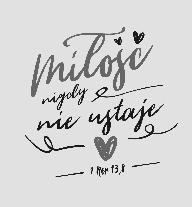 Miłość
nigdy
nie ustaje
1 Kor 13,8